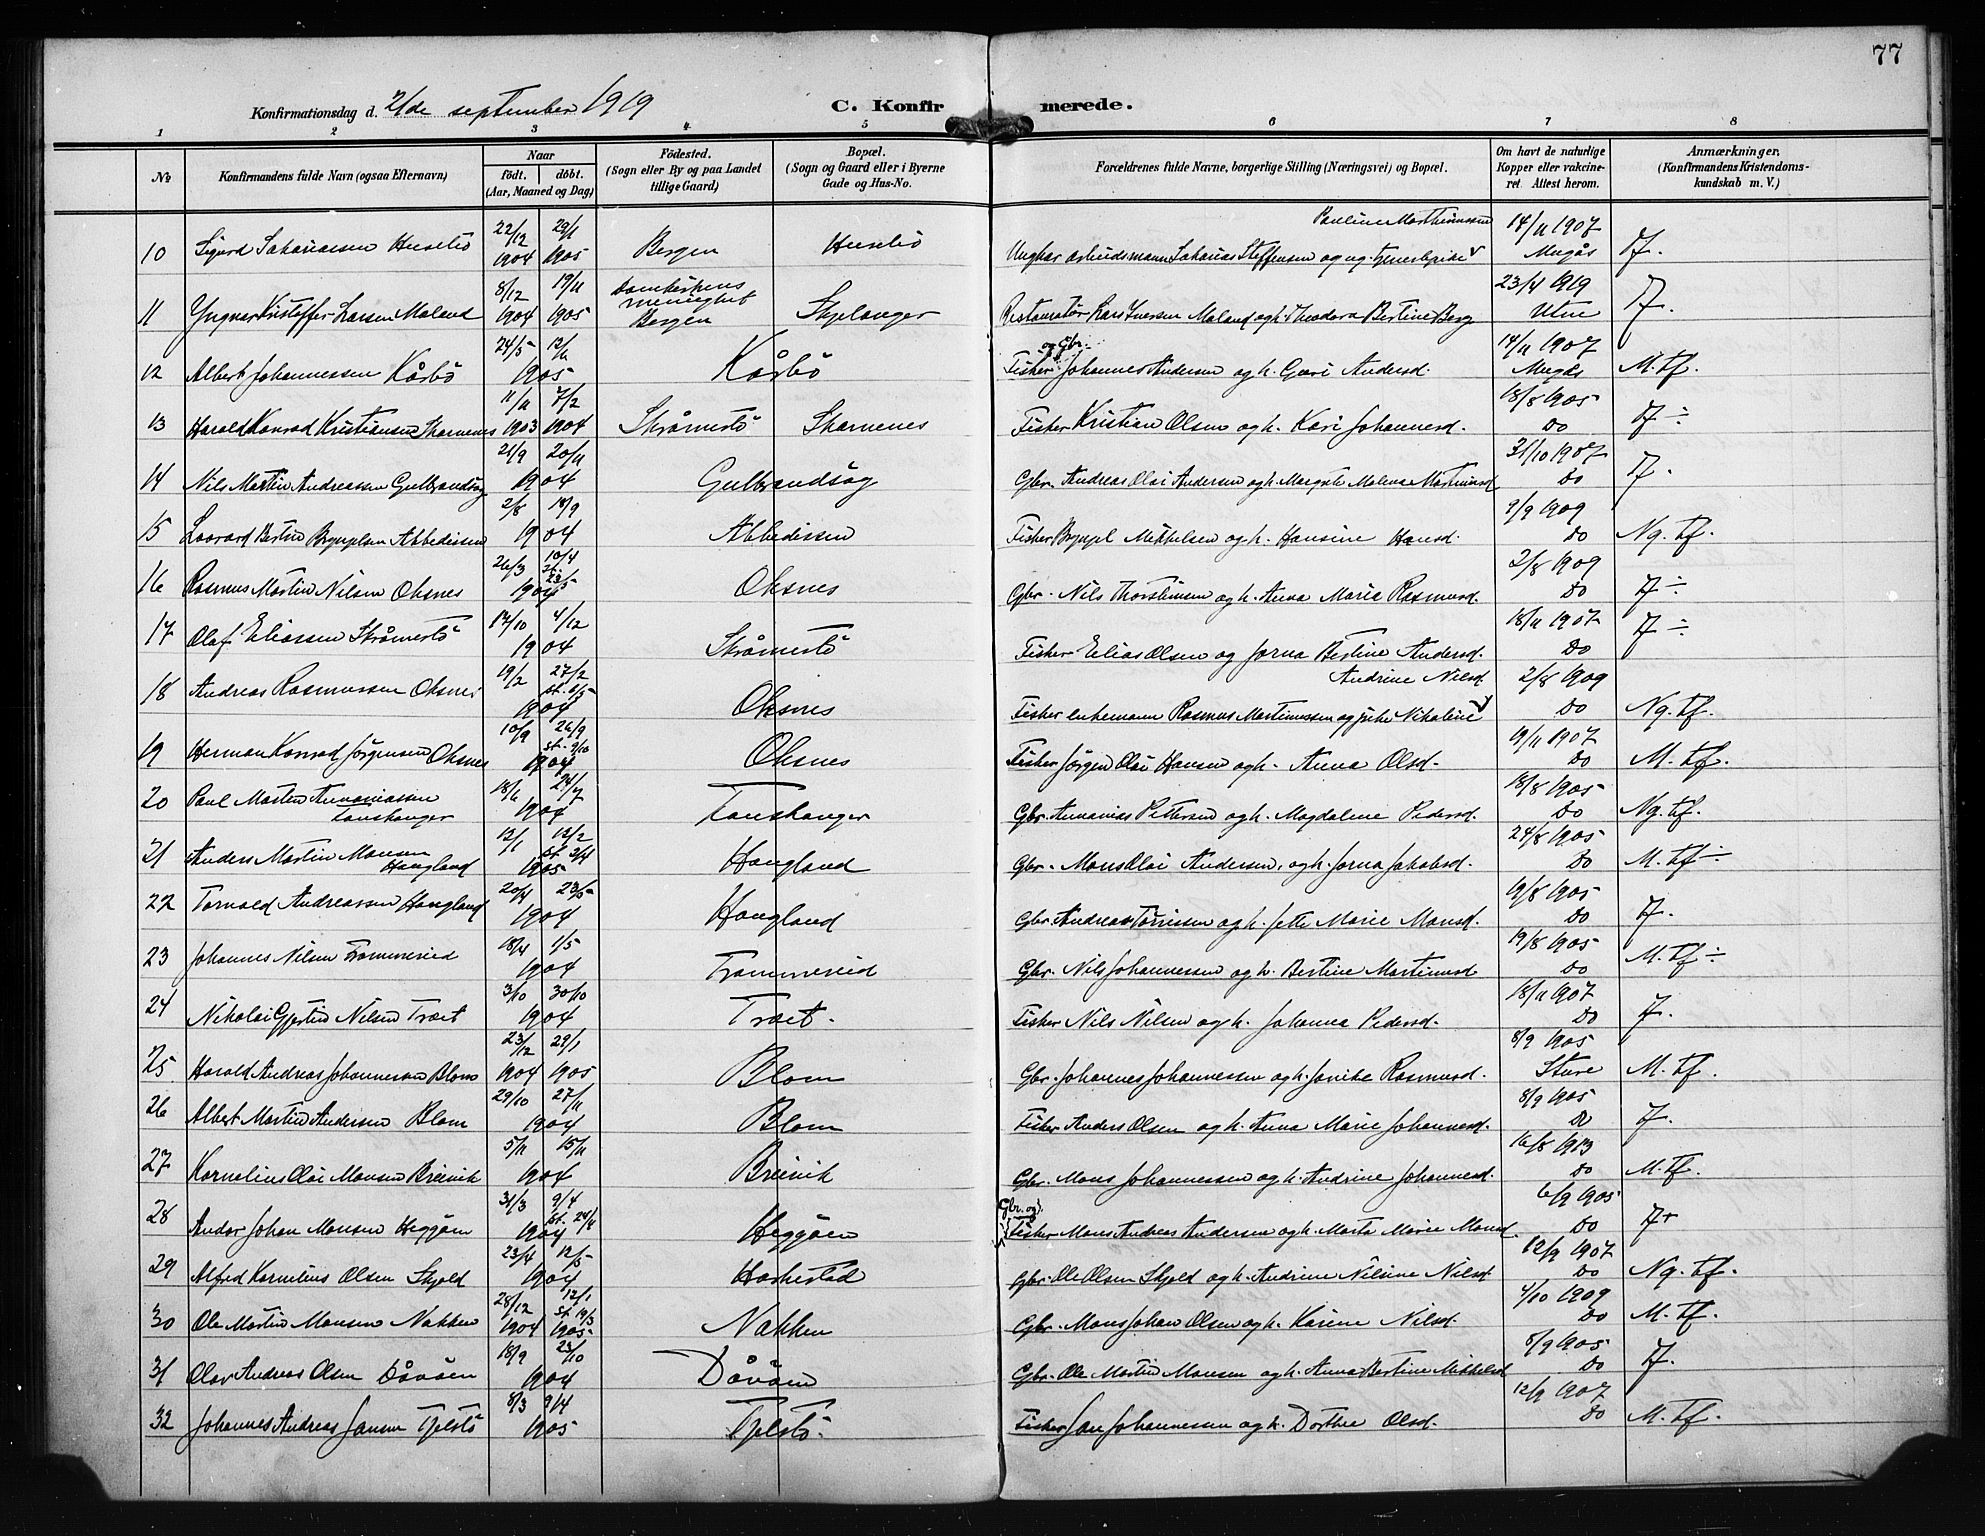 77
Konfirmationsdag d. 21de september 1919
C. Konfirmerede.
1 2 3 4 5 6 7 8
№ Konfirmandens fulde Navn (ogsaa Efternavn) Naar født. døbt. (Aar, Maaned og Dag) Födested. (Sogn eller By og paa Landet tillige Gaard) Bopæl. (Sogn og Gaard eller i Byerne Gade og Hus-No. Forældrenes fulde Navne, borgerlige Stilling (Næringsvei) og Bopæl. Om havt de naturlige Kopper eller vakcineret. Attest herom. Anmærkninger. (Konfirmandens Kristendomskundskab m. V.)
10 Sigurd Sakariassen Husebö 22/12 1904 29/1 1905 Bergen Husebö Ungkar arbeidsmann Sakarias Steffensen og ug. 14/11 1907
11 Yngvar Kristoffer Larsen Moland 8/12 1904 19/11 1905 Domkirkens menighet Bergen Skjelanger Restauratör Lars Iversen Moland og h. Theodora Bertine Berg 23/4 1919 Utne
12 Albert Johannessen Kårbö 24/5 12/11 1905 Kårbö Fisker og Gbr. Johannes Andersen og h. Guri Andersd. 14/11 1907 M. tf.
13 Harald Konrad Kristiansen Skarnenes 11/11 1903 7/2 1904 Skråmestö Skarnenes Fisker Kristian Olsen og h. Kari Johannesd. 18/8 1905 Do
14 Nils Martin Andreassen Gulbrandsög 21/9 20/11 1904 Gulbrandsög Gbr. Andreas Olai Andersen og h. Margrete Malene Martinusd 31/10 1907 Do
15 Bertin Brynjelsen Abbedissen 2/8 18/9 1904 Abbedissen Fisker Brynjel Mikkelsen og h. Hansine Hansd. 9/9 1909 Do Ng. tf.
16 Rasmus Martin Nilsen Oksnes 26/3 10/4 st. 23/5 1904 Oksnes Gbr. Nils Thorsteinsen og h. Anna Marie Rasmusd. 2/8 1909 Do
17 Olaf Eliassen Skråmestö 17/10 4/12 1904 Skråmestö Fisker Elias Olsen og Jorna Bertine Andersd. 18/11 1907 Do
18 Andreas Rasmussen Oksnes 19/2 27/2 st. 1904 Oksnes Fisker enkemann Rasmus Martinussen og pike Nikoline Andrine Nilsd. 2/8 1909 Do Ng. tf.
19 Herman Konrad Jörgensen Oksnes 10/9 26/9 st. 9/10 1904 Oksnes Fisker Jörgen Olai Hansen og h. Anna Olsd. 19/11 1907 Do M. tf.
20 Paul Martin Annaniassen Tauskanger 18/6 24/7 1904 Tauskanger Gbr. Annanias Pettersen og h. Magdalene Pedersd. 18/8 1905 Do Ng. tf.
21 Anders Martin Monsen Haugland 12/1 12/2 st. 2/4 1905 Haugland Gbr. Mons Olai Andersen, og h. Jorna Jakobsd. 24/8 1905 Do M. tf ÷
22 Torvald Andreassen Haugland 20/4 23/5 1904 Haugland Gbr. Andreas Törrissen og h. Jette Marie Monsd. 19/8 1905 Do
23 Johannes Nilsen Trommereid 18/4 1/5 1904 Trommereid Gbr. Nils Johannessen og h. Bertine Martinusd 19/8 1905 Do M. tf ÷
24 Nikolai Gjertin Nilsen Træt 3/10 30/10 1904 Træt. Fisker Nils Nilsen og h. Johanna Pedersd. 18/11 1907 Do
25 Harald Andreas Johannessen Blom 23/12 1904 29/1 1905 Blom Gbr. Johannes Johannessen og h. Janike Rasmusd. 8/9 1905 Sture M. tf.
26 Albert Martin Andersen Blom 29/10 27/11 1904 Blom Fisker Anders Olsen og h. Anna Marie Johannesd. 8/9 1905 Do
27 Kornelius Olai Monsen Breivik 5/11 15/11 1904 Breivik Gbr. Mons Johannessen og h. Andrine Johannesd. 16/8 1913 Do M. tf.
28 Andor Johan Monsen Heggöen 31/3 9/4 st. 24/4 1904 Heggöen Gbr. og Fisker Mons Andreas Andersen og h. Marta Marie Monsd. 6/9 1905 Do
29 Alfred Kornelius Olsen Skjold 23/4 12/5 1904 Harkestad Gbr. Ole Olsen Skjold og h. Andrine Nilsine Nilsd 12/9 1907 Do Ng. tf.
30 Ole Martin Monsen Nakken 28/12 1904 12/1 st. 19/3 1905 Nakken Gbr. Mons Johan Olsen og h. Karine Nilsd. 4/10 1909 Do M. tf.
31 Olav Andreas Olsen Dåvöen 18/9 23/10 1904 Dåvöen Gbr. Ole Martin Monsen og h. Anna Bertine Mikkelsd 8/9 1905 Do
32 Johannes Andreas Jansen Tjelstö 8/3 9/4 1905 Tjelstö. Fisker Jan Johannessen og h. Dorthea Olsd. 12/9 1907 Do M. tf.